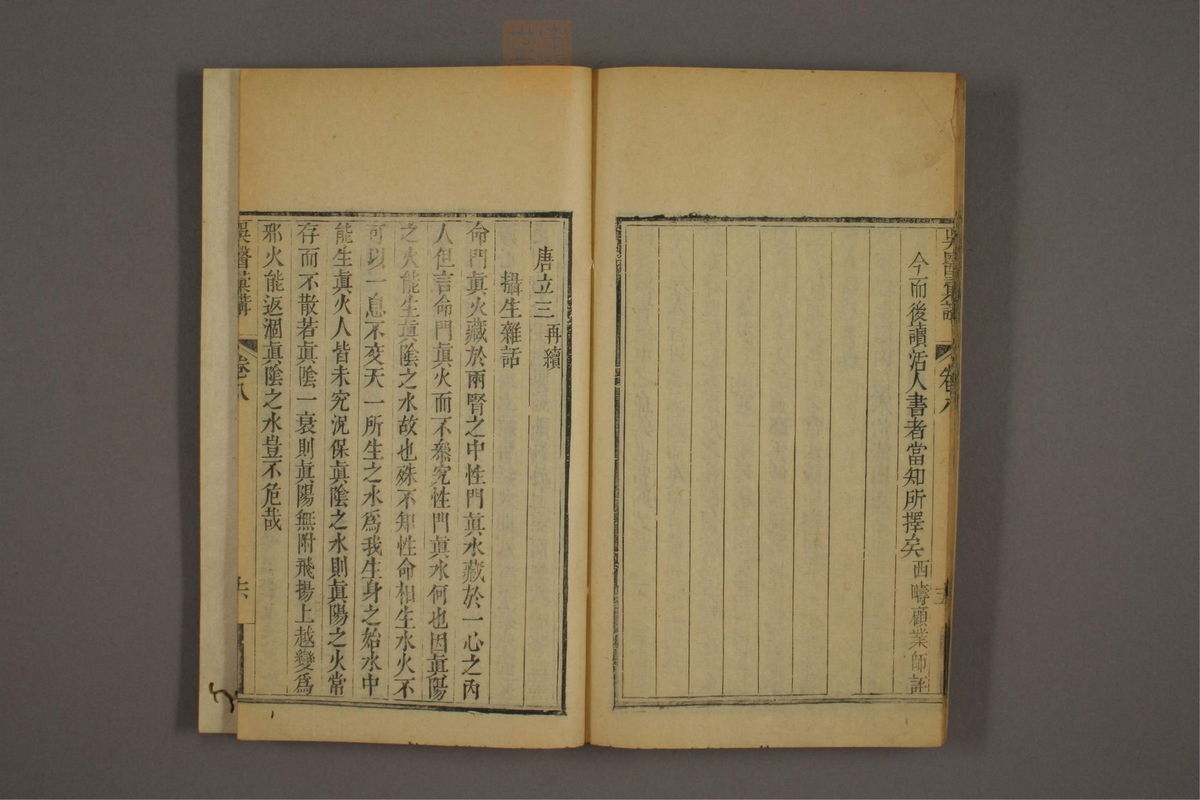 吳醫彙講
卷八
今而後讀活人書者當知所擇矣西疇顧業師評
唐立三再續
攝生雜話
命門真火藏於兩腎之中性門真水藏於一心之內
人但言命門真火而不叅究性門真水何也因真陽
之火能生真陰之水故也殊不知性命相生水火不
可以一息不交天一所生之水為我生身之始水中
能生真火人皆未究況保真陰之水則真陽之火常
存而不散若真陰一衰則真陽無附飛揚上越變為
邪火能返涸真陰之水豈不危哉
吳醫彙講
卷八